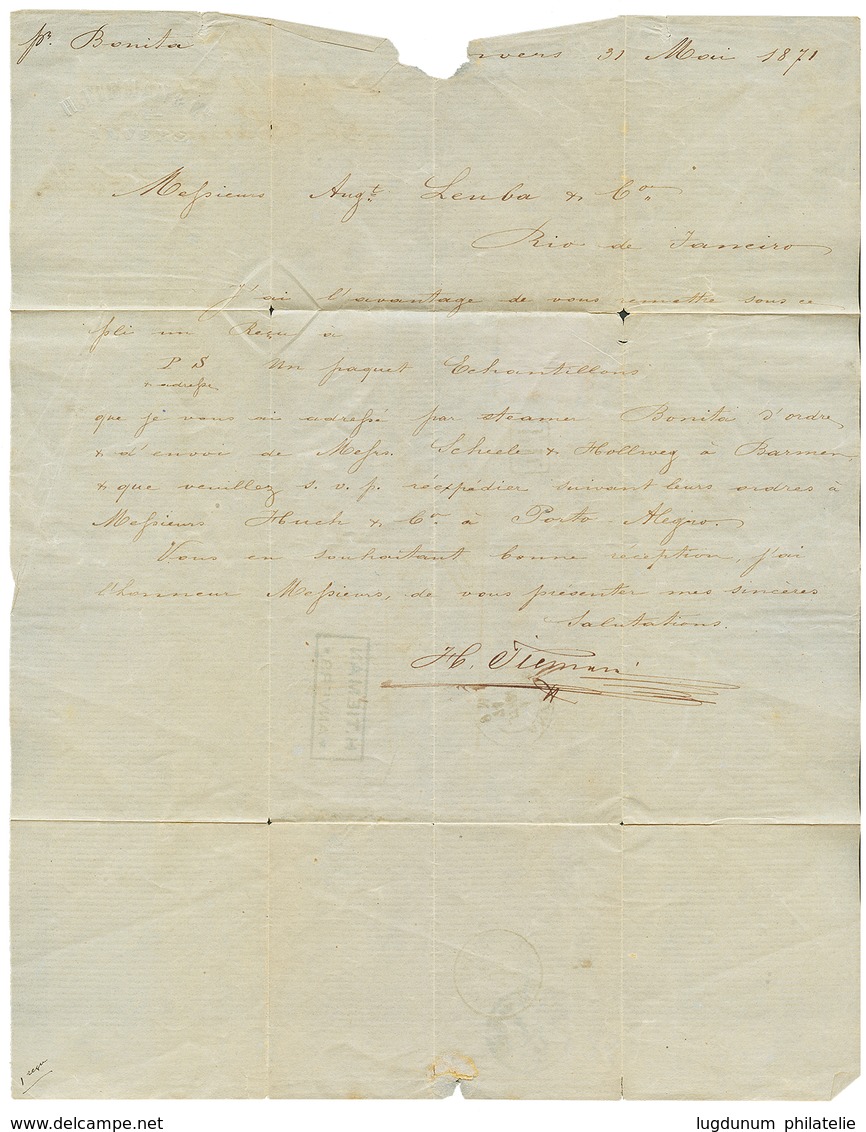 pr. Bonita
nvers 31 Mai 1871
Messieurs Augte. Leuba & Co.
Rio de Janeiro
J'ai l'avantage de vous remettre sous ce
pli un Reçu à
P S Un paquet Echantillons
& adresse
que je vous ai adressé par steamer Bonita d'ordre
& d'envoi de Messrs. Scheele & Hollweg à Barmen,
& que veuillez s. v. p. réexpédier suivant leurs ordres à
Messieurs Huch & Co. à Porto Alegro.
Vous en souhaitant bonne réception, j'ai
l'honneur Messieurs, de vous présenter mes sincères
Salutations.
H. Tieman
H. TIEMAN
ANVERS
1 reçu
www.delcampe.net
lugdunum philatelie